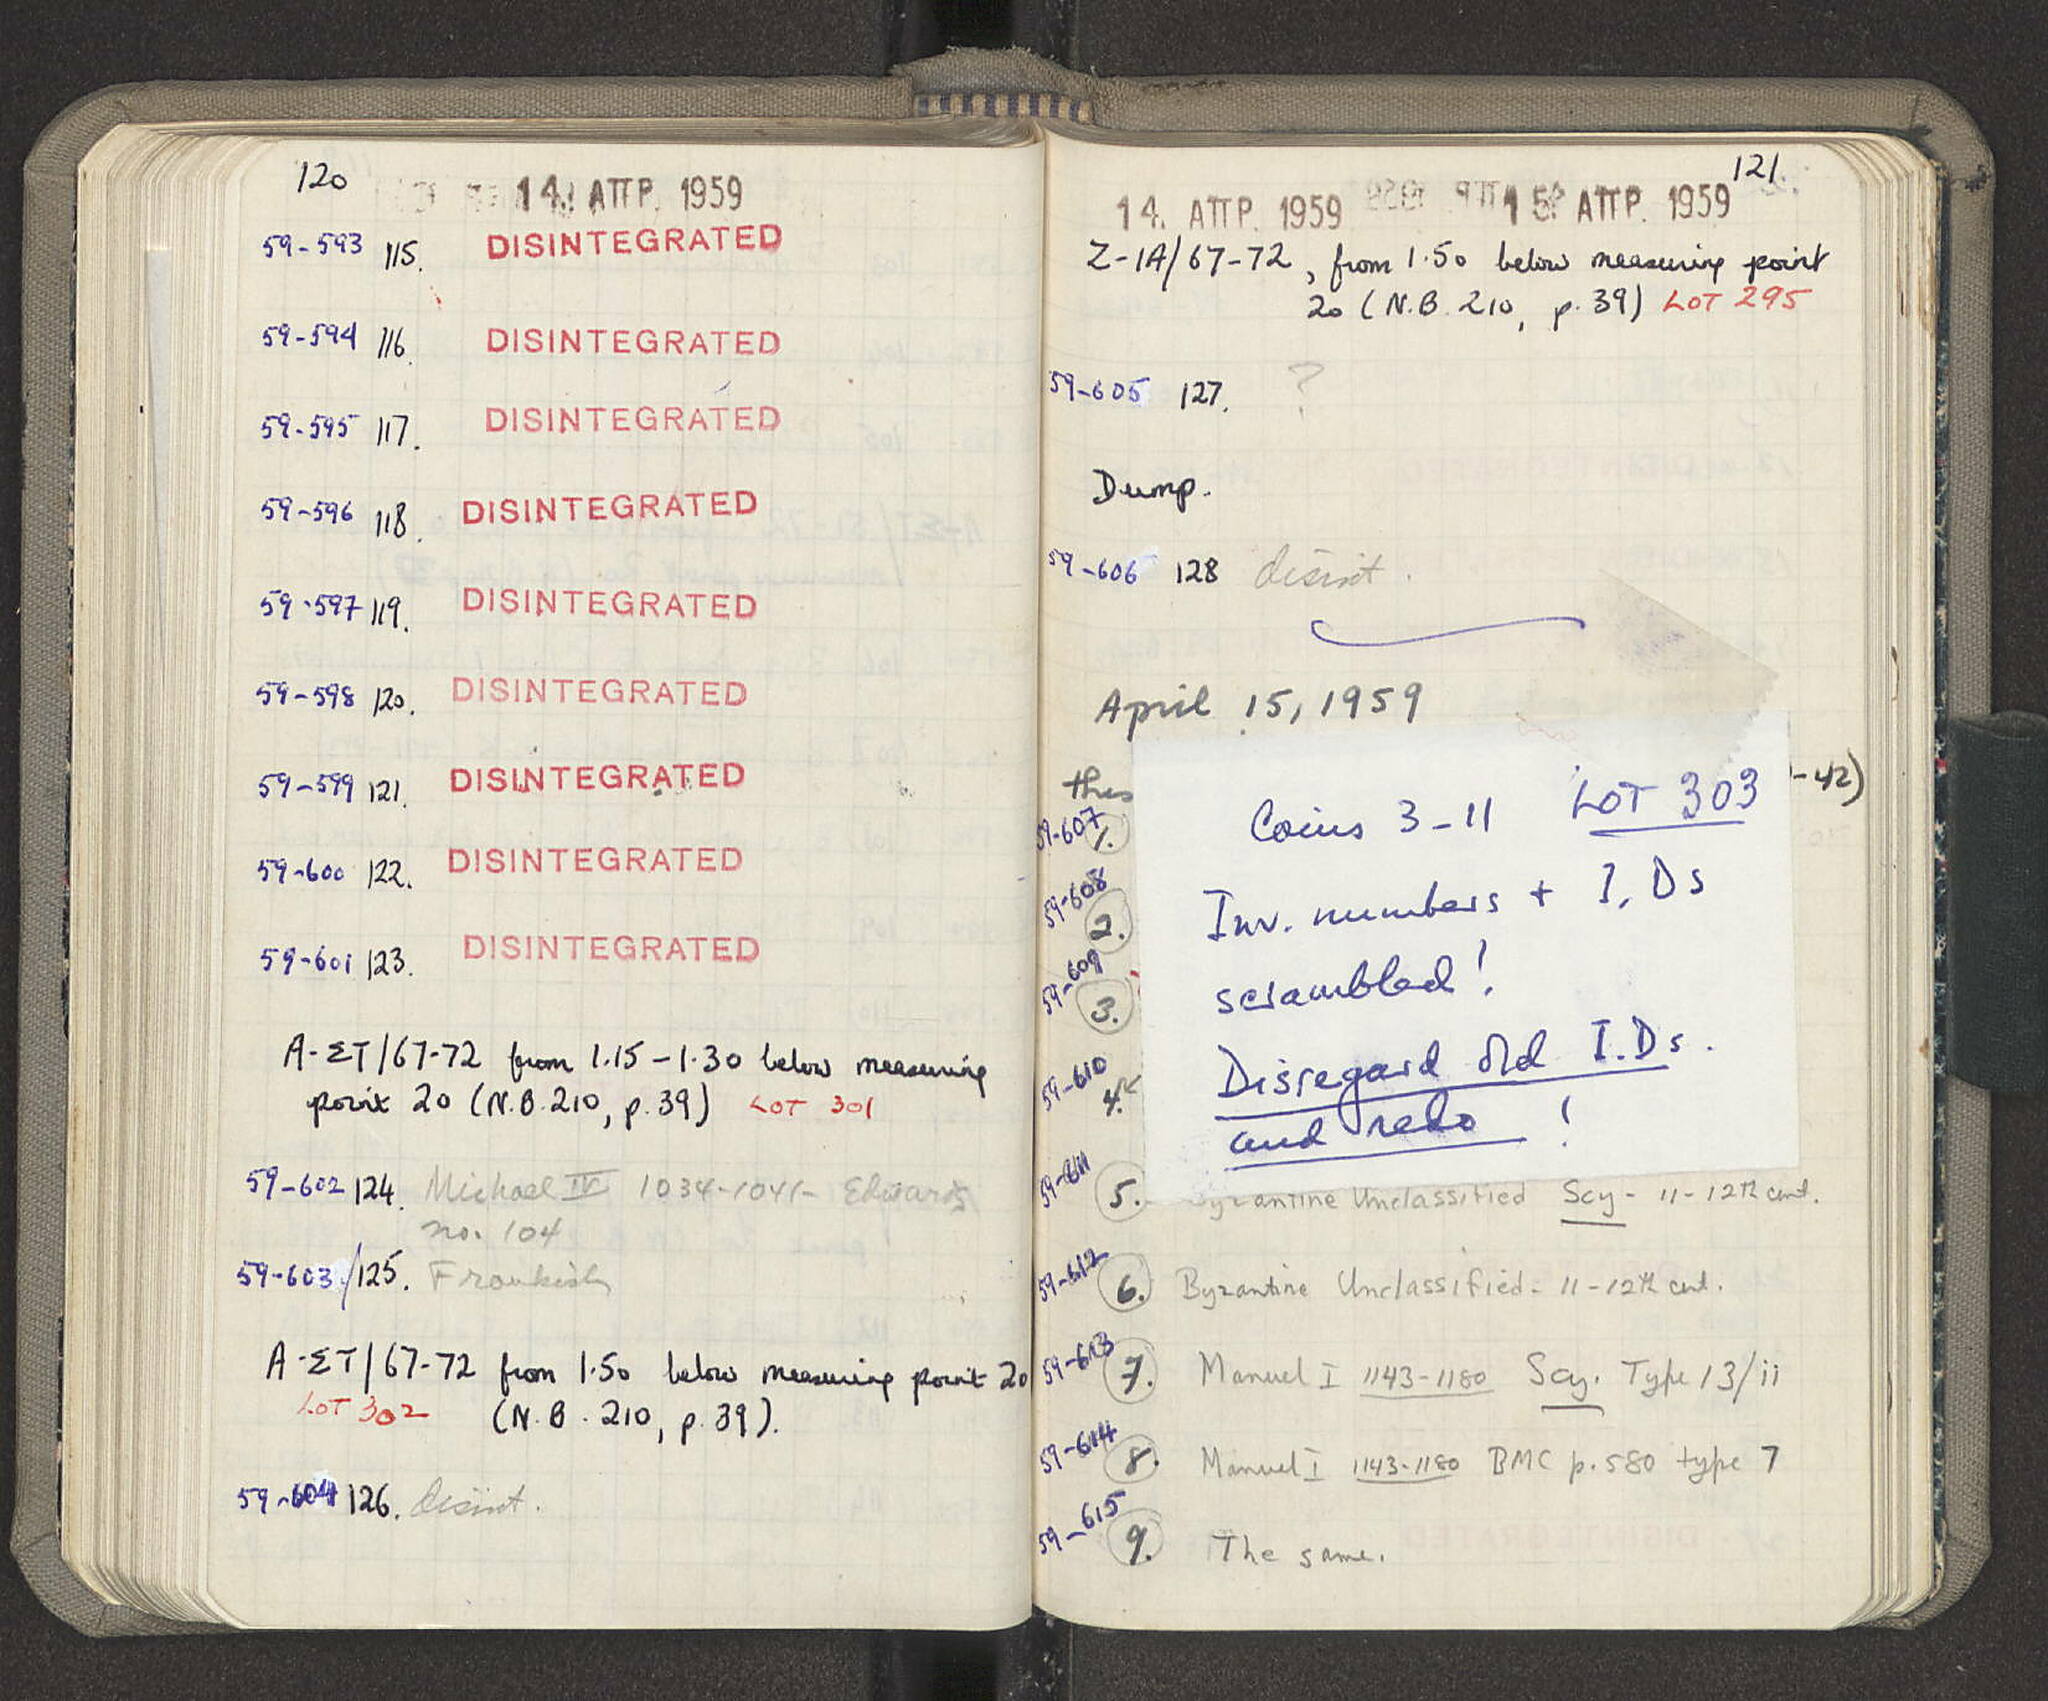 120
14. ΑΠΡ. 1959
59-593 115. DISINTEGRATED
59-594 116. DISINTEGRATED
59-595 117. DISINTEGRATED
59-596 118. DISINTEGRATED
59-597 119. DISINTEGRATED
59-598 120. DISINTEGRATED
59-599 121. DISINTEGRATED
59-600 122. DISINTEGRATED
59-601 123. DISINTEGRATED
Α-ΣΤ/67-72 from 1.15-1.30 below measuring
point 20 (N.B. 210, p. 39) LOT 301
59-602 124. Michael IV 1034-1041- Edwards
no. 104
59-603 125. Frankish
Α-ΣΤ/67-72 from 1.50 below measuring point 20
LOT 302 (N.B. 210, p. 39).
59-604 126. disint.
121
14. ΑΠΡ. 1959 15. ΑΠΡ. 1959
Z-1A/67-72, from 1.50 below measuring point
20 (N.B. 210, p. 39) LOT 295
59-605 127. ?
Dump.
59-606 128 disint.
April 15, 1959
-42)
59-607 1.
59-608 2.
59-609 3.
59-610 4.
Coins 3-11 LOT 303
Inv. numbers + I.Ds
scrambled!
Disregard old I.Ds.
and redo!
59-611 5. Byzantine Unclassified Scy- 11-12th cent.
59-612 6. Byzantine Unclassified- 11-12th cent.
59-613 7. Manuel I 1143-1180 Scy. Type 13/ii
59-614 8. Manuel I 1143-1180 BMC p. 580 type 7
59-615 9. The same.